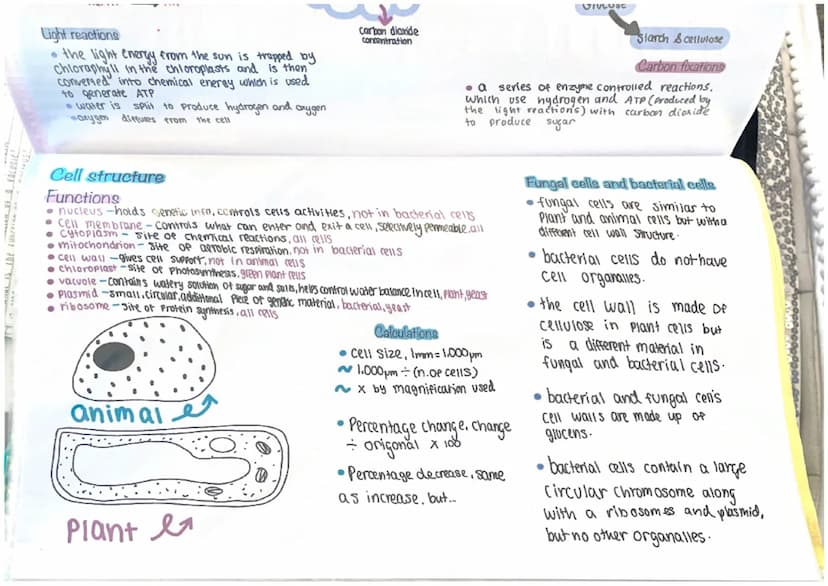 Glucose
Starch & cellulose
Carbon dioxide
concentration
Light reactions
• the light energy from the sun is trapped by
chlorophyll in the chloroplasts and is then
converted into chemical energy which is used
to generate ATP
• water is split to produce hydrogen and oxygen
• oxygen diffuses from the cell
Carbon fixations
• a series of enzyme controlled reactions,
which use hydrogen and ATP (produced by
the light reactions) with carbon dioxide
to produce sugar
Cell structure
Functions
• nucleus - holds genetic info, controls cells activities, not in bacterial cells
• Cell membrane - controls what can enter and exit a cell, selectively permeable, all
• cytoplasm - site of chemical reactions, all cells
• mitochondrion - site of aerobic respiration, not in bacterial cells
• cell wall - gives cell support, not in animal cells
• chloroplast - site of photosynthesis, green plant cells
• vacuole - contains watery solution of sugar and salts, helps control water balance in cell, plant, yeast
• plasmid - small, circular, additional piece of genetic material, bacterial, yeast
• ribosome - site of protein synthesis, all cells
animal
plant
Calculations
• cell size, 1mm = 1,000µm
~ 1,000µm ÷ (n. of cells)
~ x by magnification used
• Percentage change, change
÷ origonal x 100
• Percentage decrease, same
as increase, but...
Fungal cells and bacterial cells
• fungal cells are similar to
plant and animal cells but with a
different cell wall structure.
• bacterial cells do not have
cell organalles.
• the cell wall is made of
cellulose in plant cells but
is a different material in
fungal and bacterial cells.
• bacterial and fungal cells
cell walls are made up of
glucens.
• bacterial cells contain a large
circular chromosome along
with a ribosomes and plasmid,
but no other organalles.